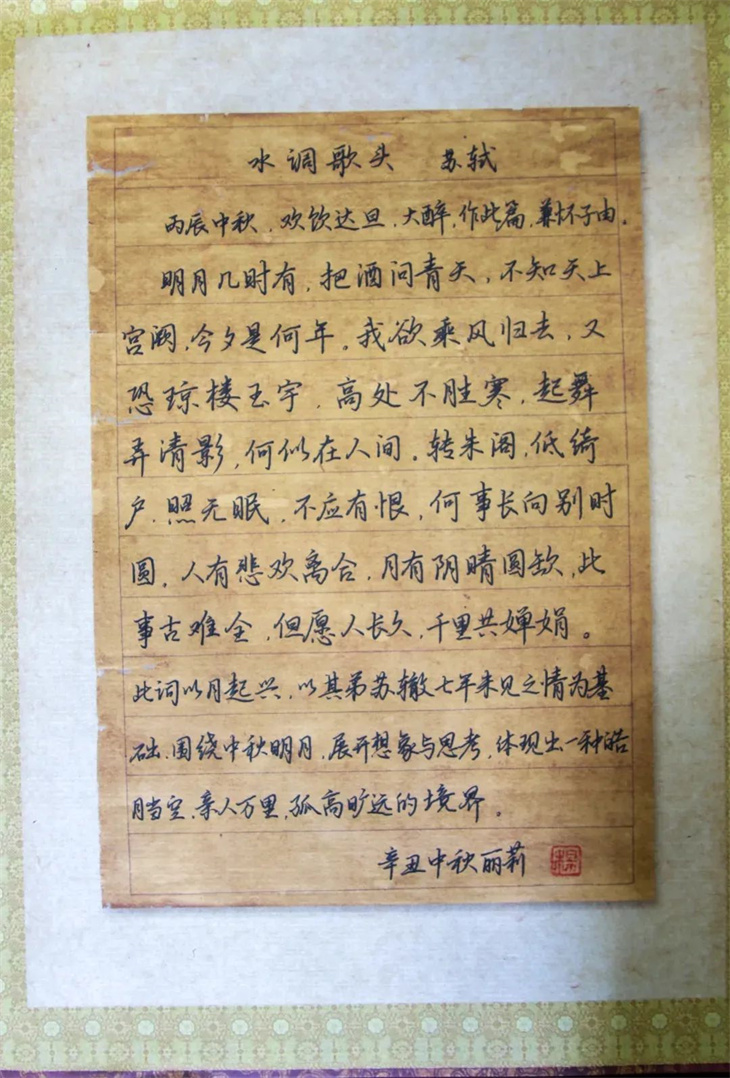 水调歌头 苏轼
丙辰中秋，欢饮达旦，大醉，作此篇，兼怀子由。
明月几时有，把酒问青天，不知天上
宫阙，今夕是何年。我欲乘风归去，又
恐琼楼玉宇，高处不胜寒，起舞
弄清影，何似在人间。转朱阁，低绮
户，照无眠，不应有恨，何事长向别时
圆，人有悲欢离合，月有阴晴圆缺，此
事古难全，但愿人长久，千里共婵娟。
此词以月起兴，以其弟苏辙七年未见之情为基
础，围绕中秋明月，展开想象与思考，体现出一种皓
月当空，亲人万里，孤高旷远的境界。
辛丑中秋丽莉